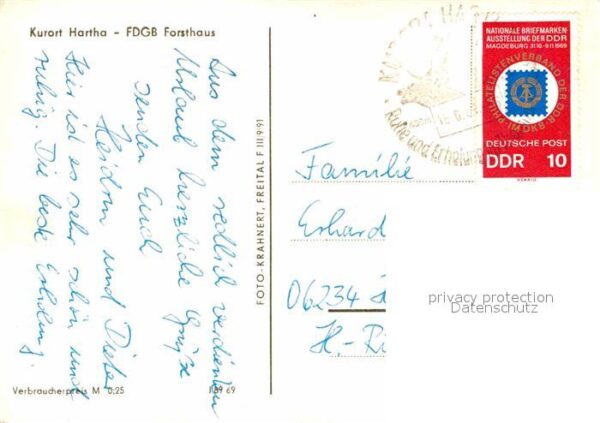 Kurort Hartha – FDGB Forsthaus
Aus dem redlich verdienten
Urlaub herzliche Grüße
senden Euch
Heidrun und Dieter
Hier ist es sehr schön und
ruhig. Die beste Erholung.
Verbraucherpreis M 0,25
69
FOTO-KRAHNERT, FREITAL F III.9.91
KURORT HARTHA
Ruhe und Erholung
NATIONALE BRIEFMARKEN-
AUSSTELLUNG DER DDR
MAGDEBURG 31.10.-9.11.1969
PHILATELISTENVERBAND DER DDR
IM DKB
DEUTSCHE POST
DDR 10
Familie
Erhard
06234
H.-Ri
privacy protection
Datenschutz